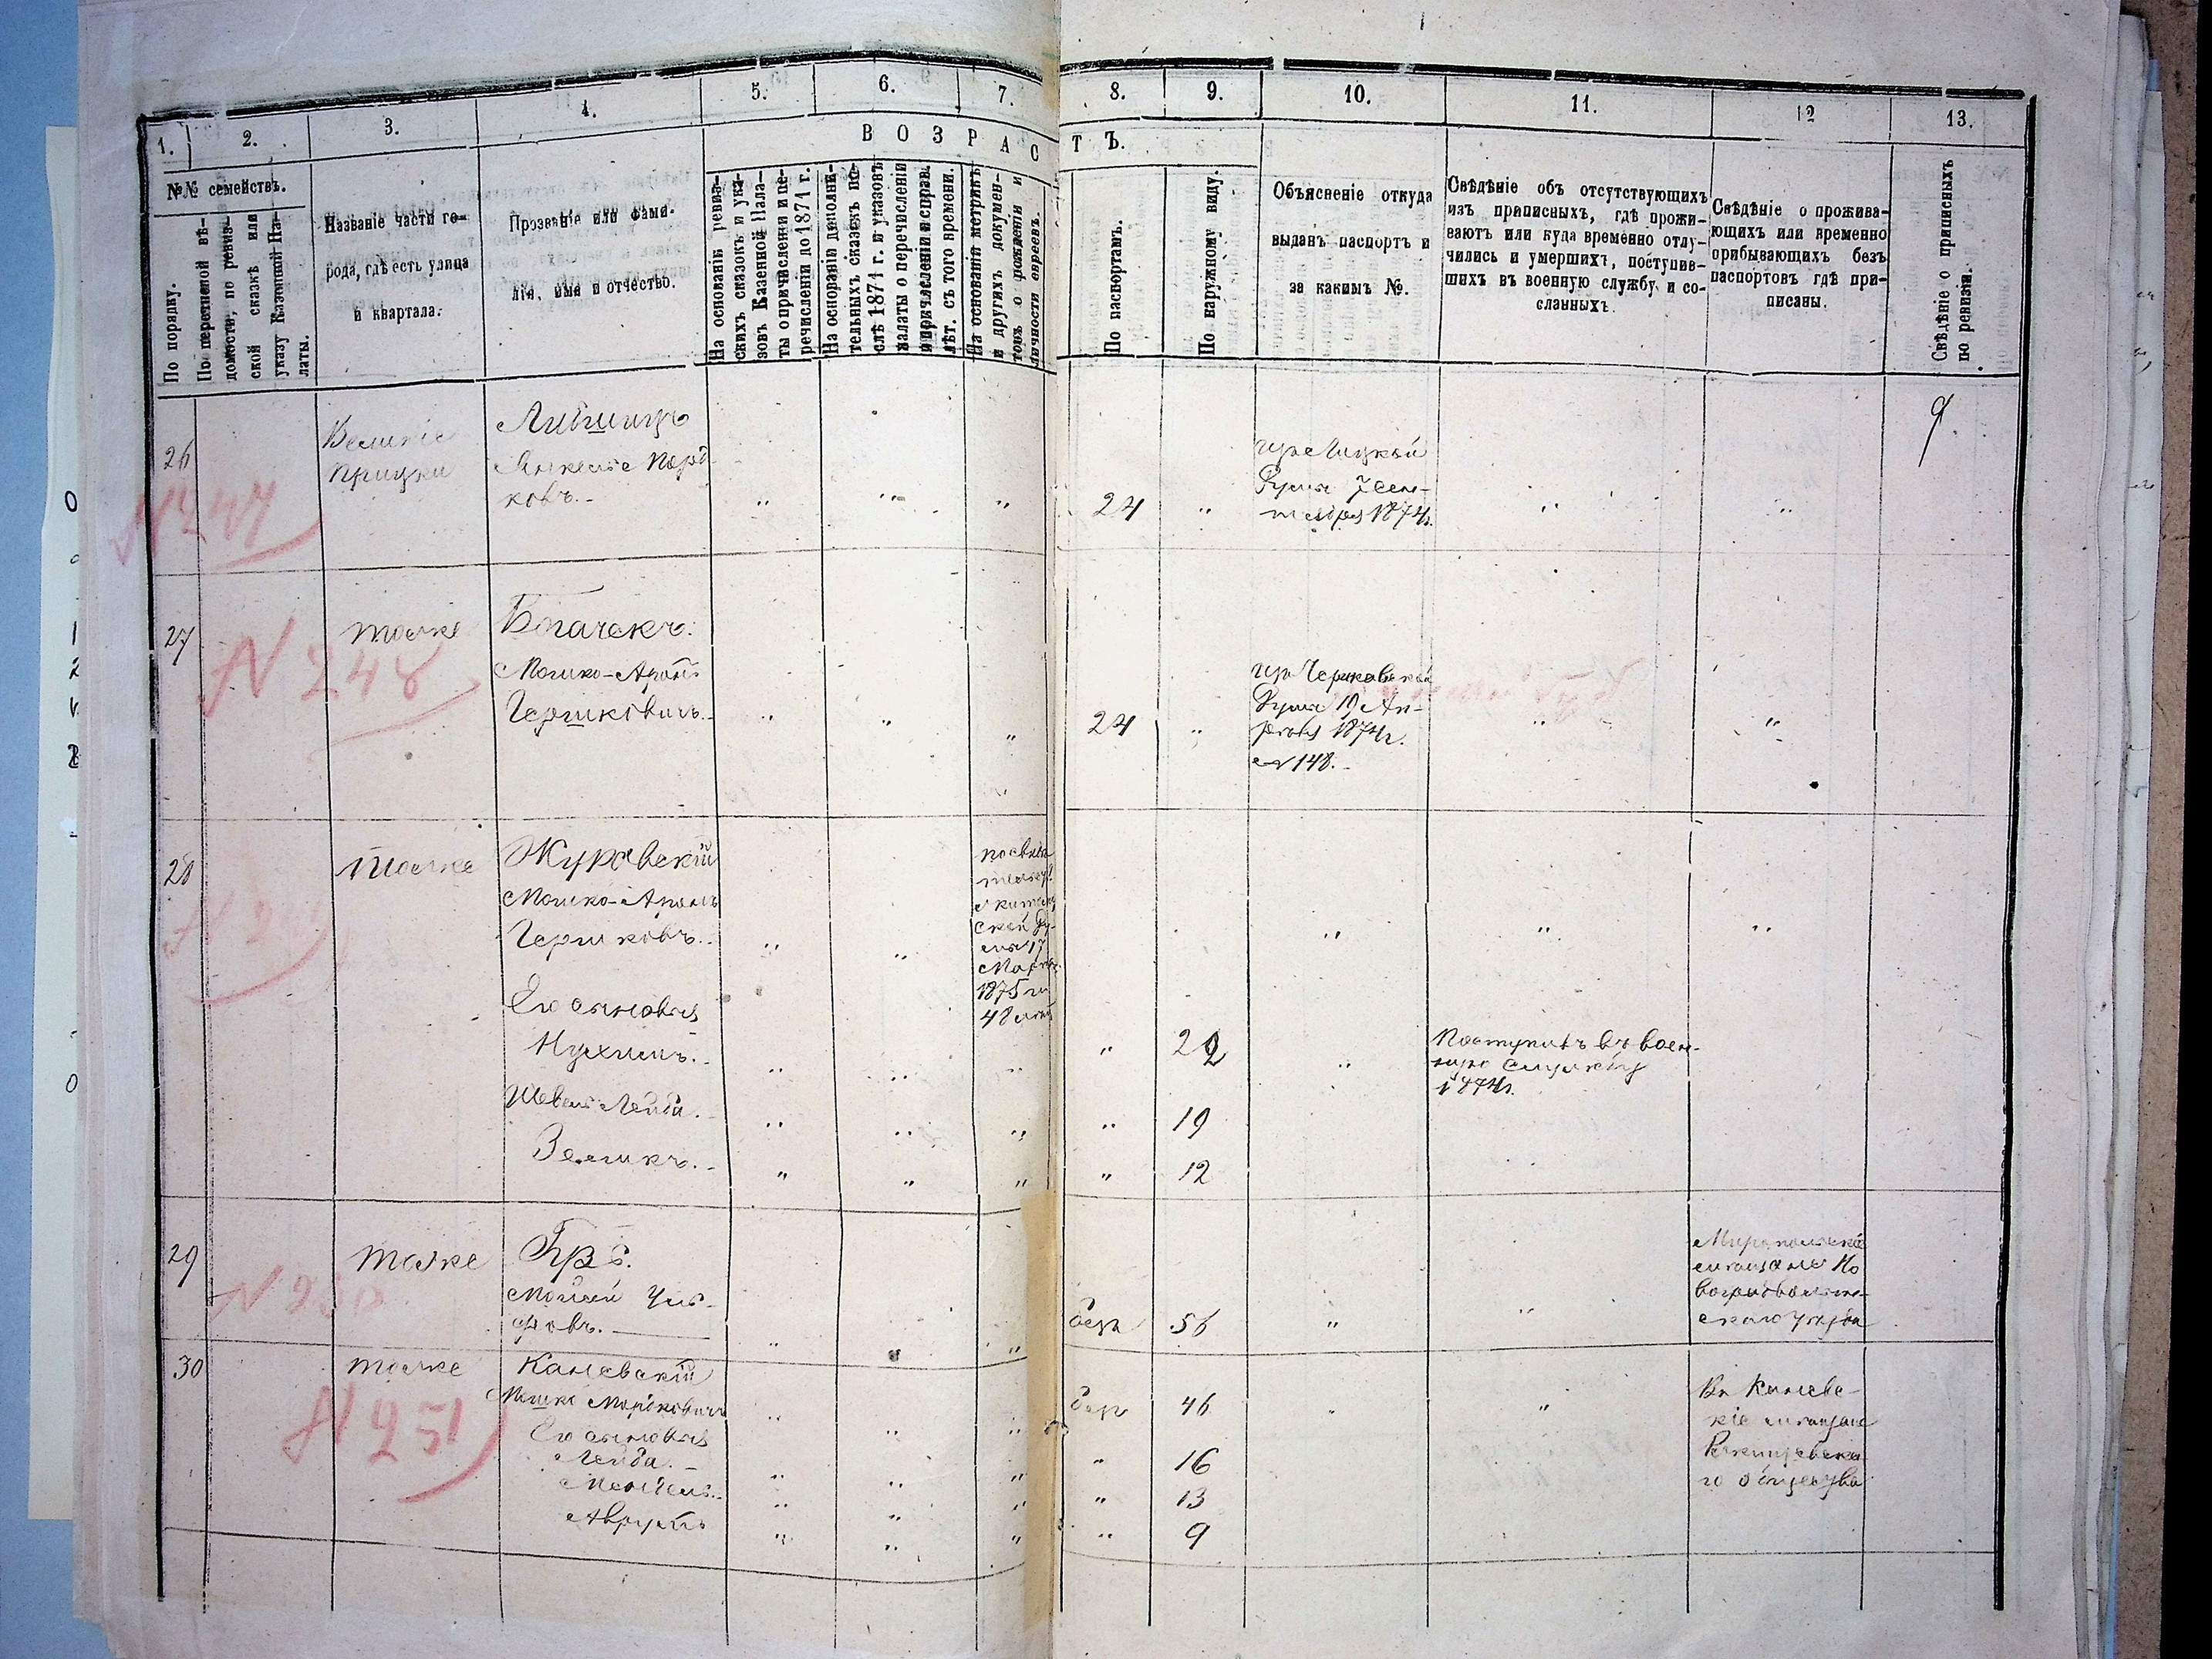 1.
2.
3.
4.
5.
6.
7.
8.
9.
10.
11.
12
13.
В О З Р А С Т Ъ.
№№ семействъ.
По порядку.
По переписной вѣ-
домости, по ревиз-
ской сказкѣ или
указу Казенной Па-
латы.
Названіе части го-
рода, гдѣ есть улица
и квартала.
Прозваніе или фами-
лія, имя и отчество.
На основаніи ревиз-
скихъ сказокъ и ука-
зовъ Казенной Пала-
ты о причисленіи и пе-
речисленіи до 1871 г.
На основаніи дополни-
тельныхъ сказокъ по-
слѣ 1871 г. и указовъ
палаты о перечисленіи
и причисленіи и справ.
лѣт. съ того времени.
На основаніи метрикъ
и другихъ докумен-
товъ о рожденіи и
личности евреевъ.
По паспортамъ.
По наружному виду.
Объясненіе откуда
выданъ паспортъ и
за какимъ №.
Свѣдѣніе объ отсутствующихъ
изъ приписныхъ, гдѣ прожи-
ваютъ или куда временно отлу-
чились и умершихъ, поступив-
шихъ въ военную службу и со-
сланныхъ.
Свѣдѣніе о прожива-
ющихъ или временно
прибывающихъ безъ
паспортовъ гдѣ при-
писаны.
Свѣдѣніе о приписныхъ
по ревизіи.
9
26
Великіе
Прицки
Либшицъ
24
Думы 7 Сен-
тября 1874г.
27
тоже
N 248
Богачекъ.
Мошко-Аронъ
Гершковичъ.
24
Думы 19 Ап-
рѣля 1874г.
№ 148.
28
Тоже
Журавскій
Мошко-Аронъ
Гершковъ.
17
Марта
1875 г.
48 лѣтъ
Его сыновья
Нухимъ.
22
Поступилъ въ воен-
ную службу
1874г.
Шевель Лейба.
19
Зеликъ.
12
29
тоже
N 250
безъ
56
мѣщане Но
воградволын-
скаго уѣзда
30
тоже
N 251
Каневскій
Мошко Морковичъ
безъ
46
Его сыновья
Лейба.
16
Мендель.
13
Аврумъ
9
кіе мѣщане
го общества